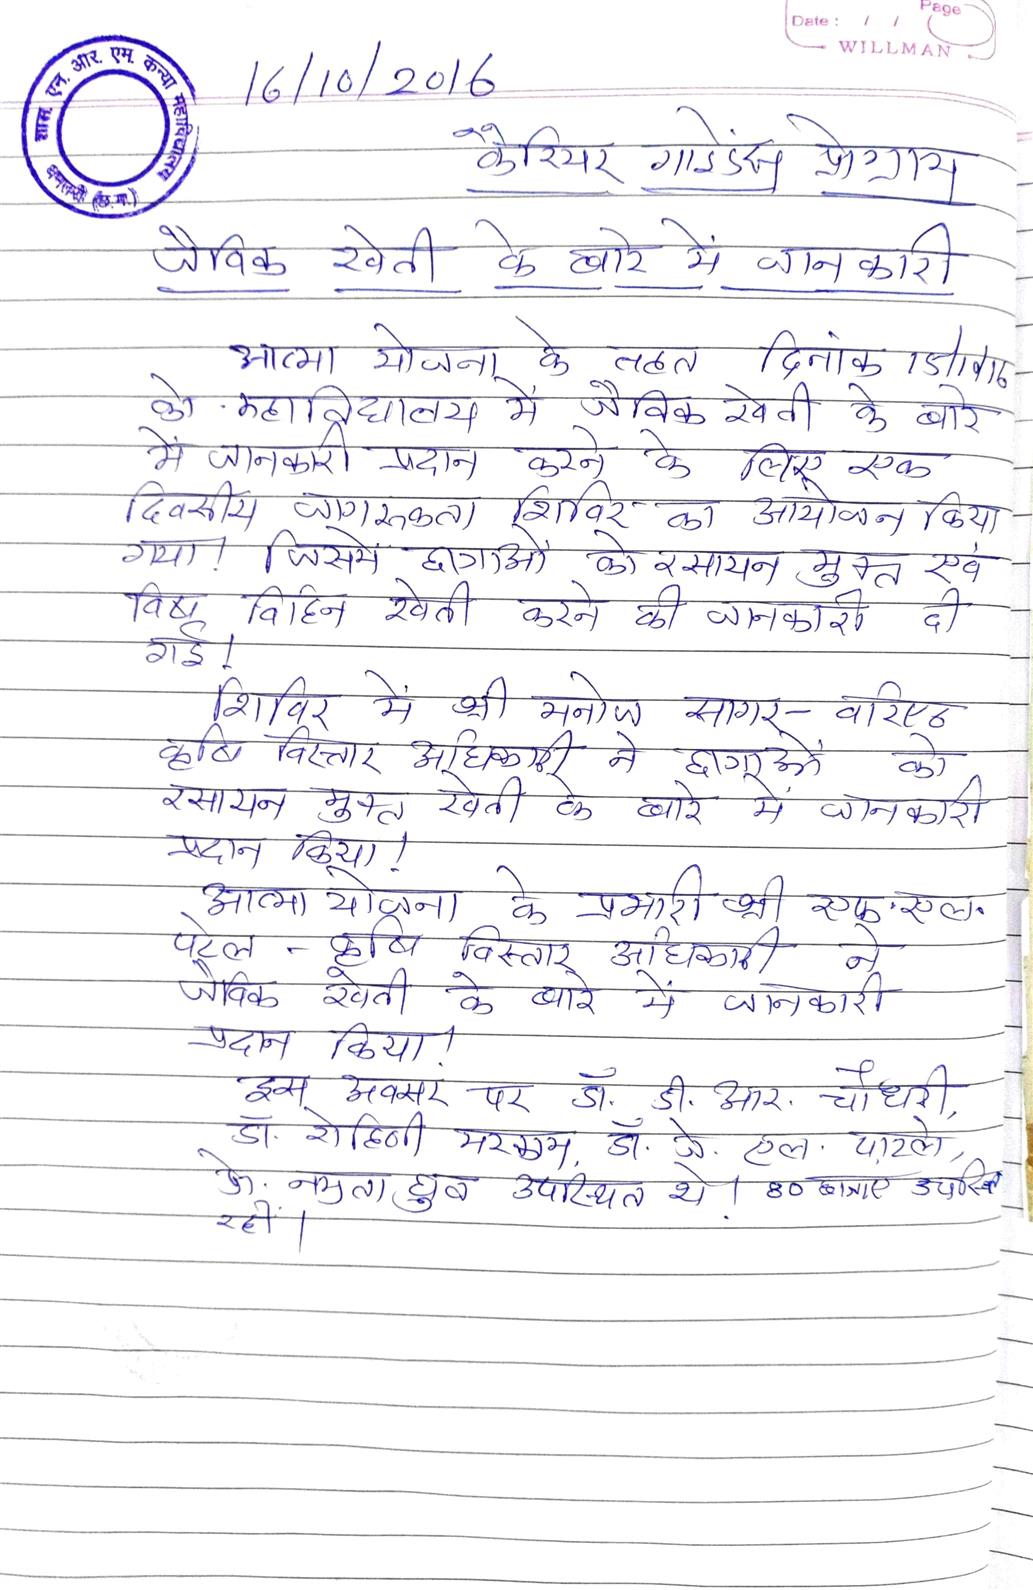 Page
Date : / /
WILLMAN
शास. एन. आर. एम. कन्या महाविद्यालय
16/10/2016
कैरियर गाईडेंस प्रोग्राम
जैविक खेती के बारे में जानकारी
आत्मा योजना के तहत दिनांक
को महाविद्यालय में जैविक खेती के बारे
में जानकारी प्रदान करने के लिए एक
दिवसीय जागरूकता शिविर का आयोजन किया
गया! जिसमें छात्राओं को रसायन मुक्त एवं
विष विहिन खेती करने की जानकारी दी
गई!
शिविर में श्री मनोज सागर - वरिष्ठ
कृषि विस्तार अधिकारी ने छात्राओं को
रसायन मुक्त खेती के बारे में जानकारी
प्रदान किया!
आत्मा योजना के प्रभारी श्री एफ. एल.
पटेल - कृषि विस्तार अधिकारी ने
जैविक खेती के बारे में जानकारी
प्रदान किया!
इस अवसर पर डॉ. डी. आर. चौधरी,
डॉ. रोहिणी मरकाम, डॉ. जे. एल. पाटले,
नम्रता ध्रुव उपस्थित थे। 80 छात्राएं उपस्थित
रहीं।